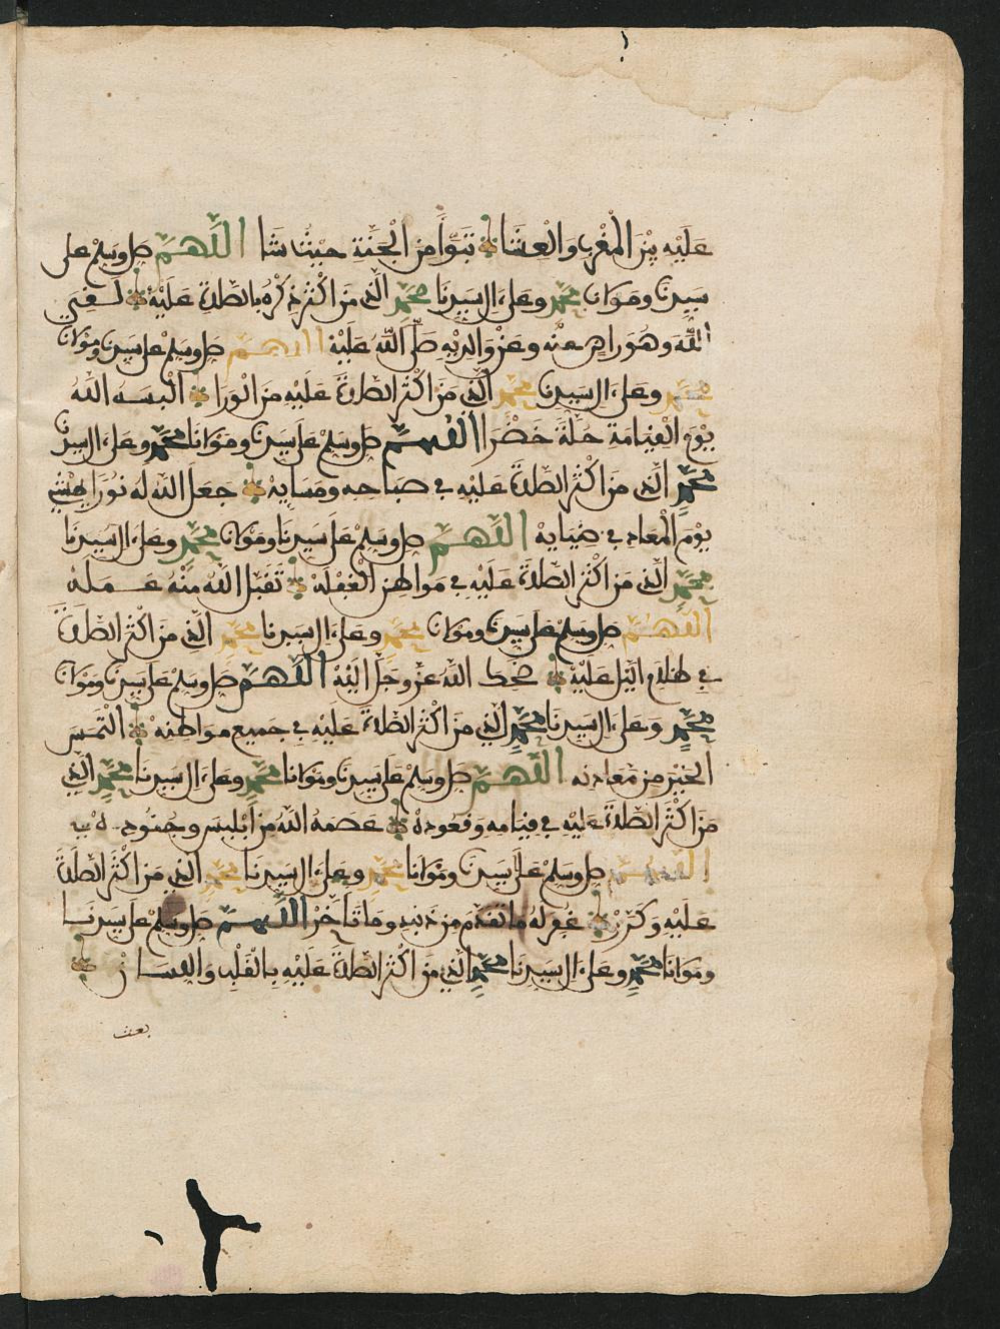 عليه بين المغرب والعشا تبوأ من الجنة حيث شا اللهم صل وسلم على
سيدنا ومولانا محمد وعلى ءال سيدنا محمد الذي من اكثر ذكره بالصلاة عليه لقي
الله وهو راض عنه وعن والديه صلى الله عليه اللهم صل وسلم على سيدنا ومولانا
محمد وعلى ءال سيدنا محمد الذي من اكثر الصلاة عليه من الورا البسه الله
يوم القيامة حلة خضرا اللهم صل وسلم على سيدنا ومولانا محمد وعلى ءال سيدنا
محمد الذي من اكثر الصلاة عليه في صباحه ومسايه جعل الله له نورا يمشي
يوم المعاد في ضيايه اللهم صل وسلم على سيدنا ومولانا محمد وعلى ءال سيدنا
محمد الذي من اكثر الصلاة عليه في مواطن الغفلة تقبل الله منه عمله
اللهم صل وسلم على سيدنا ومولانا محمد وعلى ءال سيدنا محمد الذي من اكثر الصلاة
في ظلام اليل عليه الله عز وجل اليه اللهم صل وسلم على سيدنا ومولانا
محمد وعلى ءال سيدنا محمد الذي من اكثر الصلاة عليه في جميع مواطنه التمس
الخير من معادنه اللهم صل وسلم على سيدنا ومولانا محمد وعلى ءال سيدنا محمد الذي
من اكثر الصلاة عليه في قيامه وقعوده عصمه الله من ابليس وجنوده
اللهم صل وسلم على سيدنا ومولانا محمد وعلى ءال سيدنا محمد الذي من اكثر الصلاة
عليه وكرر غفر له ما تقدم من ذنبه وما تاخر اللهم صل وسلم على سيدنا
ومولانا محمد وعلى ءال سيدنا محمد الذي من اكثر الصلاة عليه بالقلب واللسان
بعث